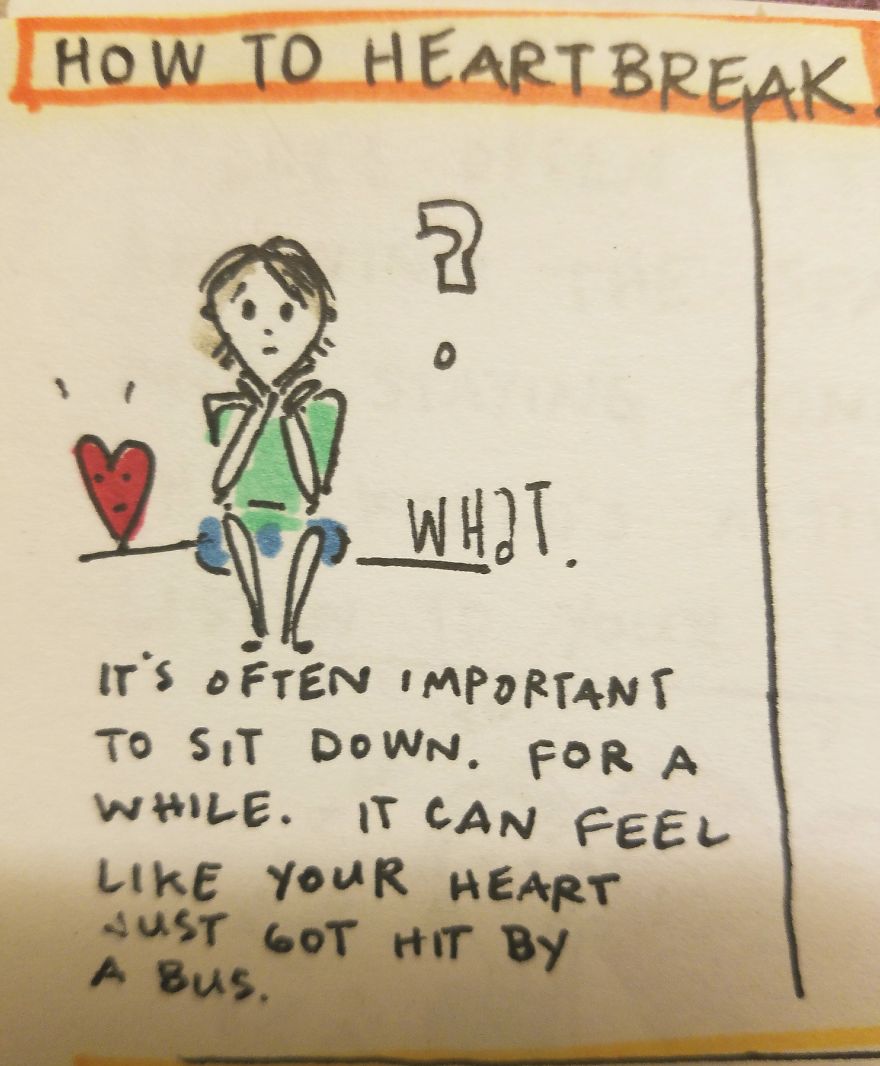 HOW TO HEARTBREAK
?
WHAT.
IT'S OFTEN IMPORTANT
TO SIT DOWN. FOR A
WHILE. IT CAN FEEL
LIKE YOUR HEART
JUST GOT HIT BY
A BUS.